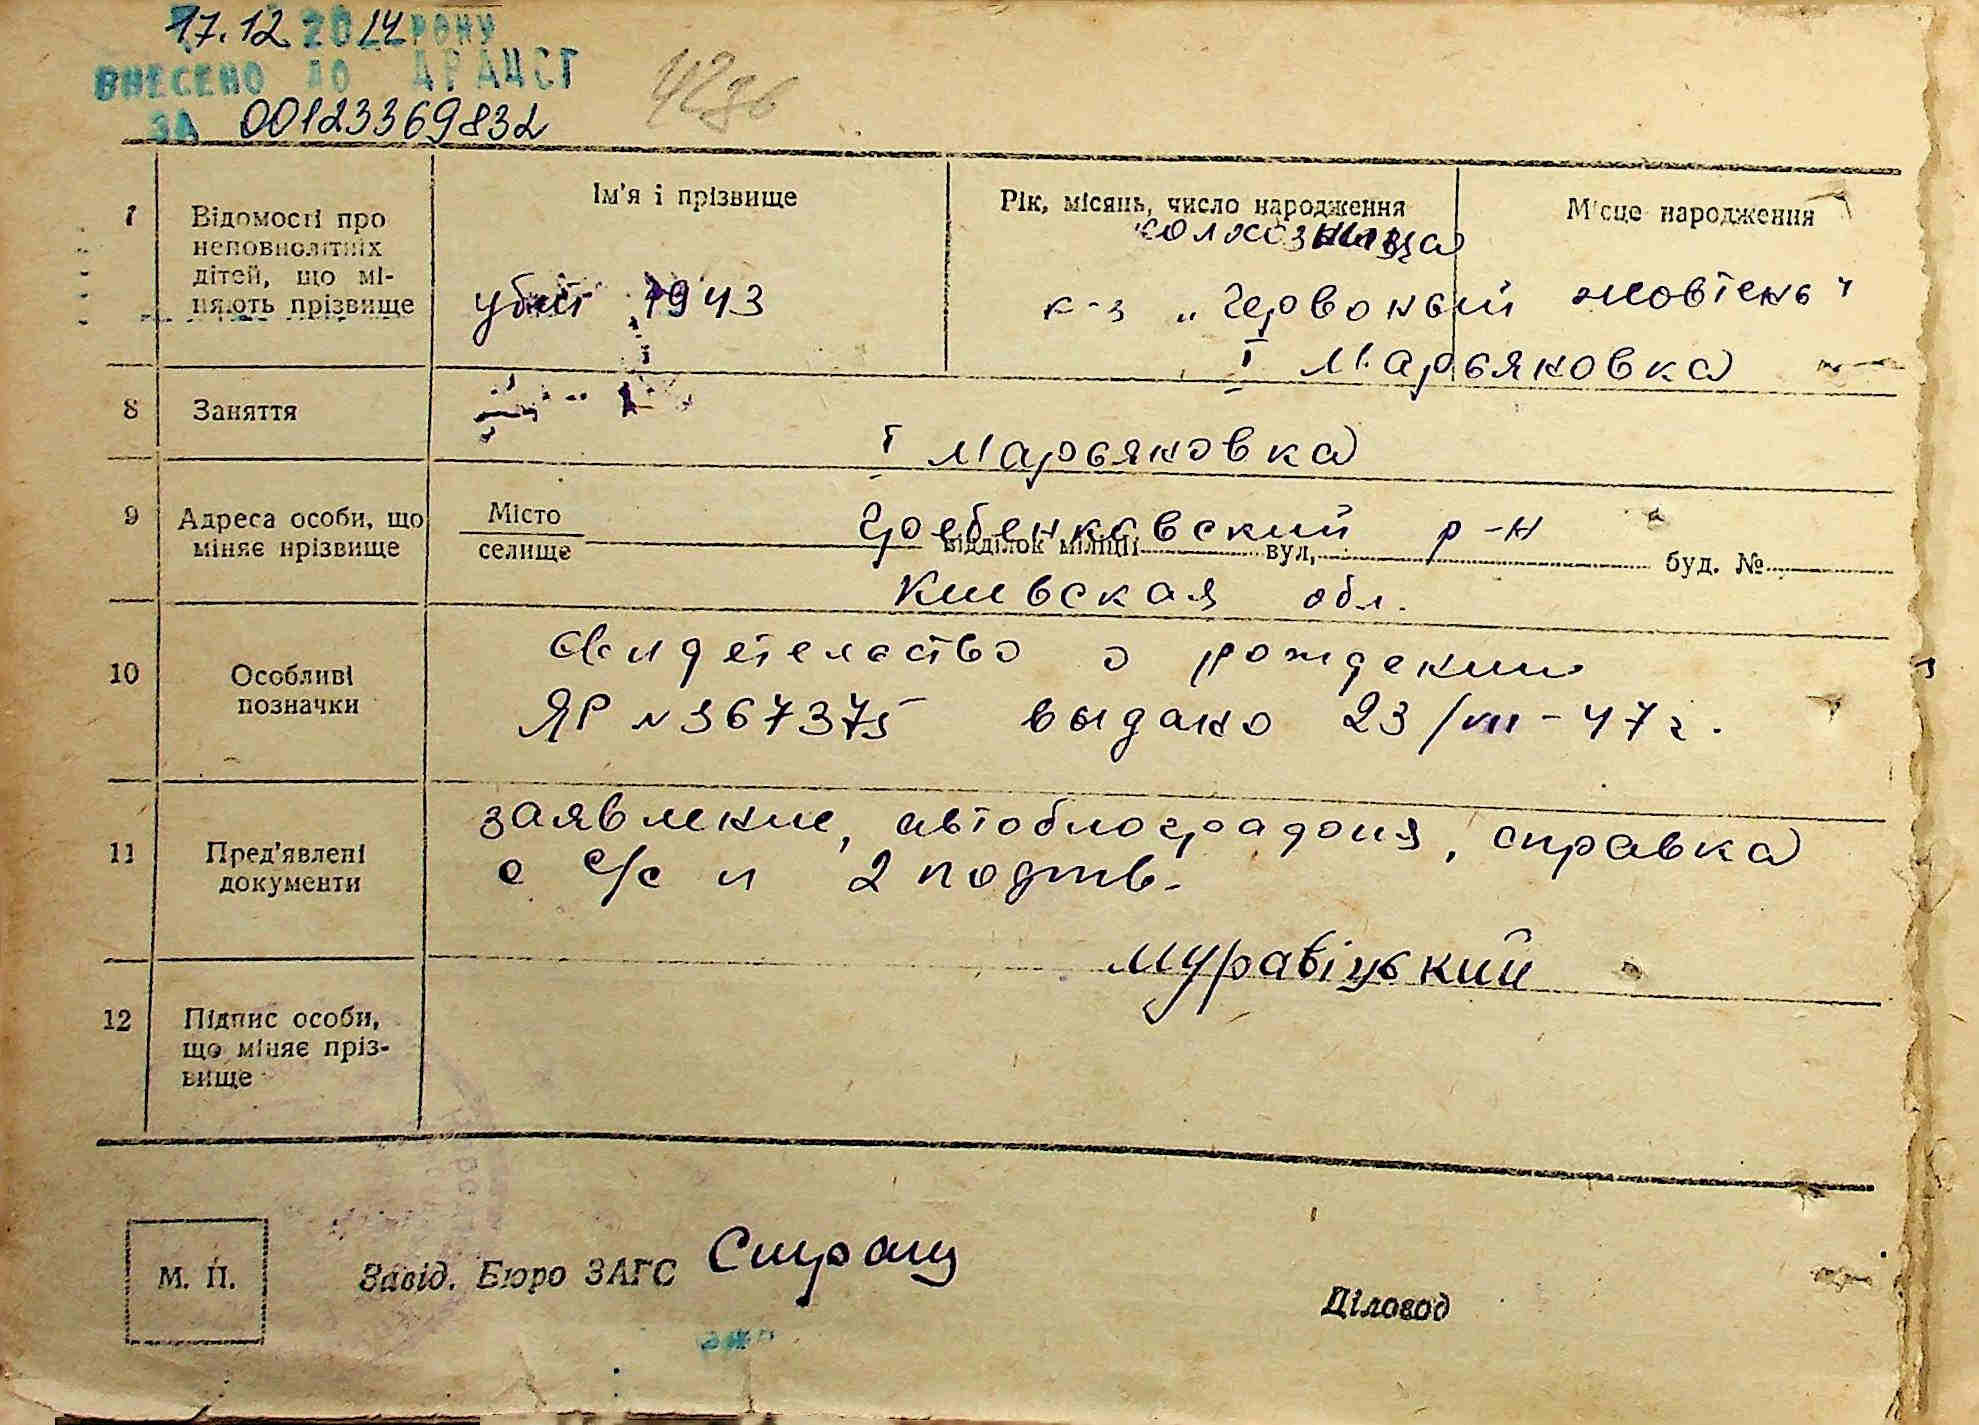 17.12 2014 року
ВНЕСЕНО ДО ДРАЦСГ
ЗА 00123369832
7 Відомості про неповнолітніх дітей, що міняють прізвище
Ім'я і прізвище
Рік, місянь, число народження
Місце народження
колхозница
убит 1943
к-з „Червоный жовтень"
I Марьяновка
8 Заняття
I Марьяновка
9 Адреса особи, що міняє прізвище
Місто
селище
відділок міліції
вул,
буд. №
Гребенковский р-н
Киевская обл.
10 Особливі позначки
свидетельство о рождении
ЯР № 367375 выдано 23/VII-47 г.
11 Пред'явлені документи
заявление, автобиография, справка
с с/с и 2 подтв.
Муравіцький
12 Підпис особи, що міняє прізвище
М. П.
Завід. Бюро ЗАГС
Діловод